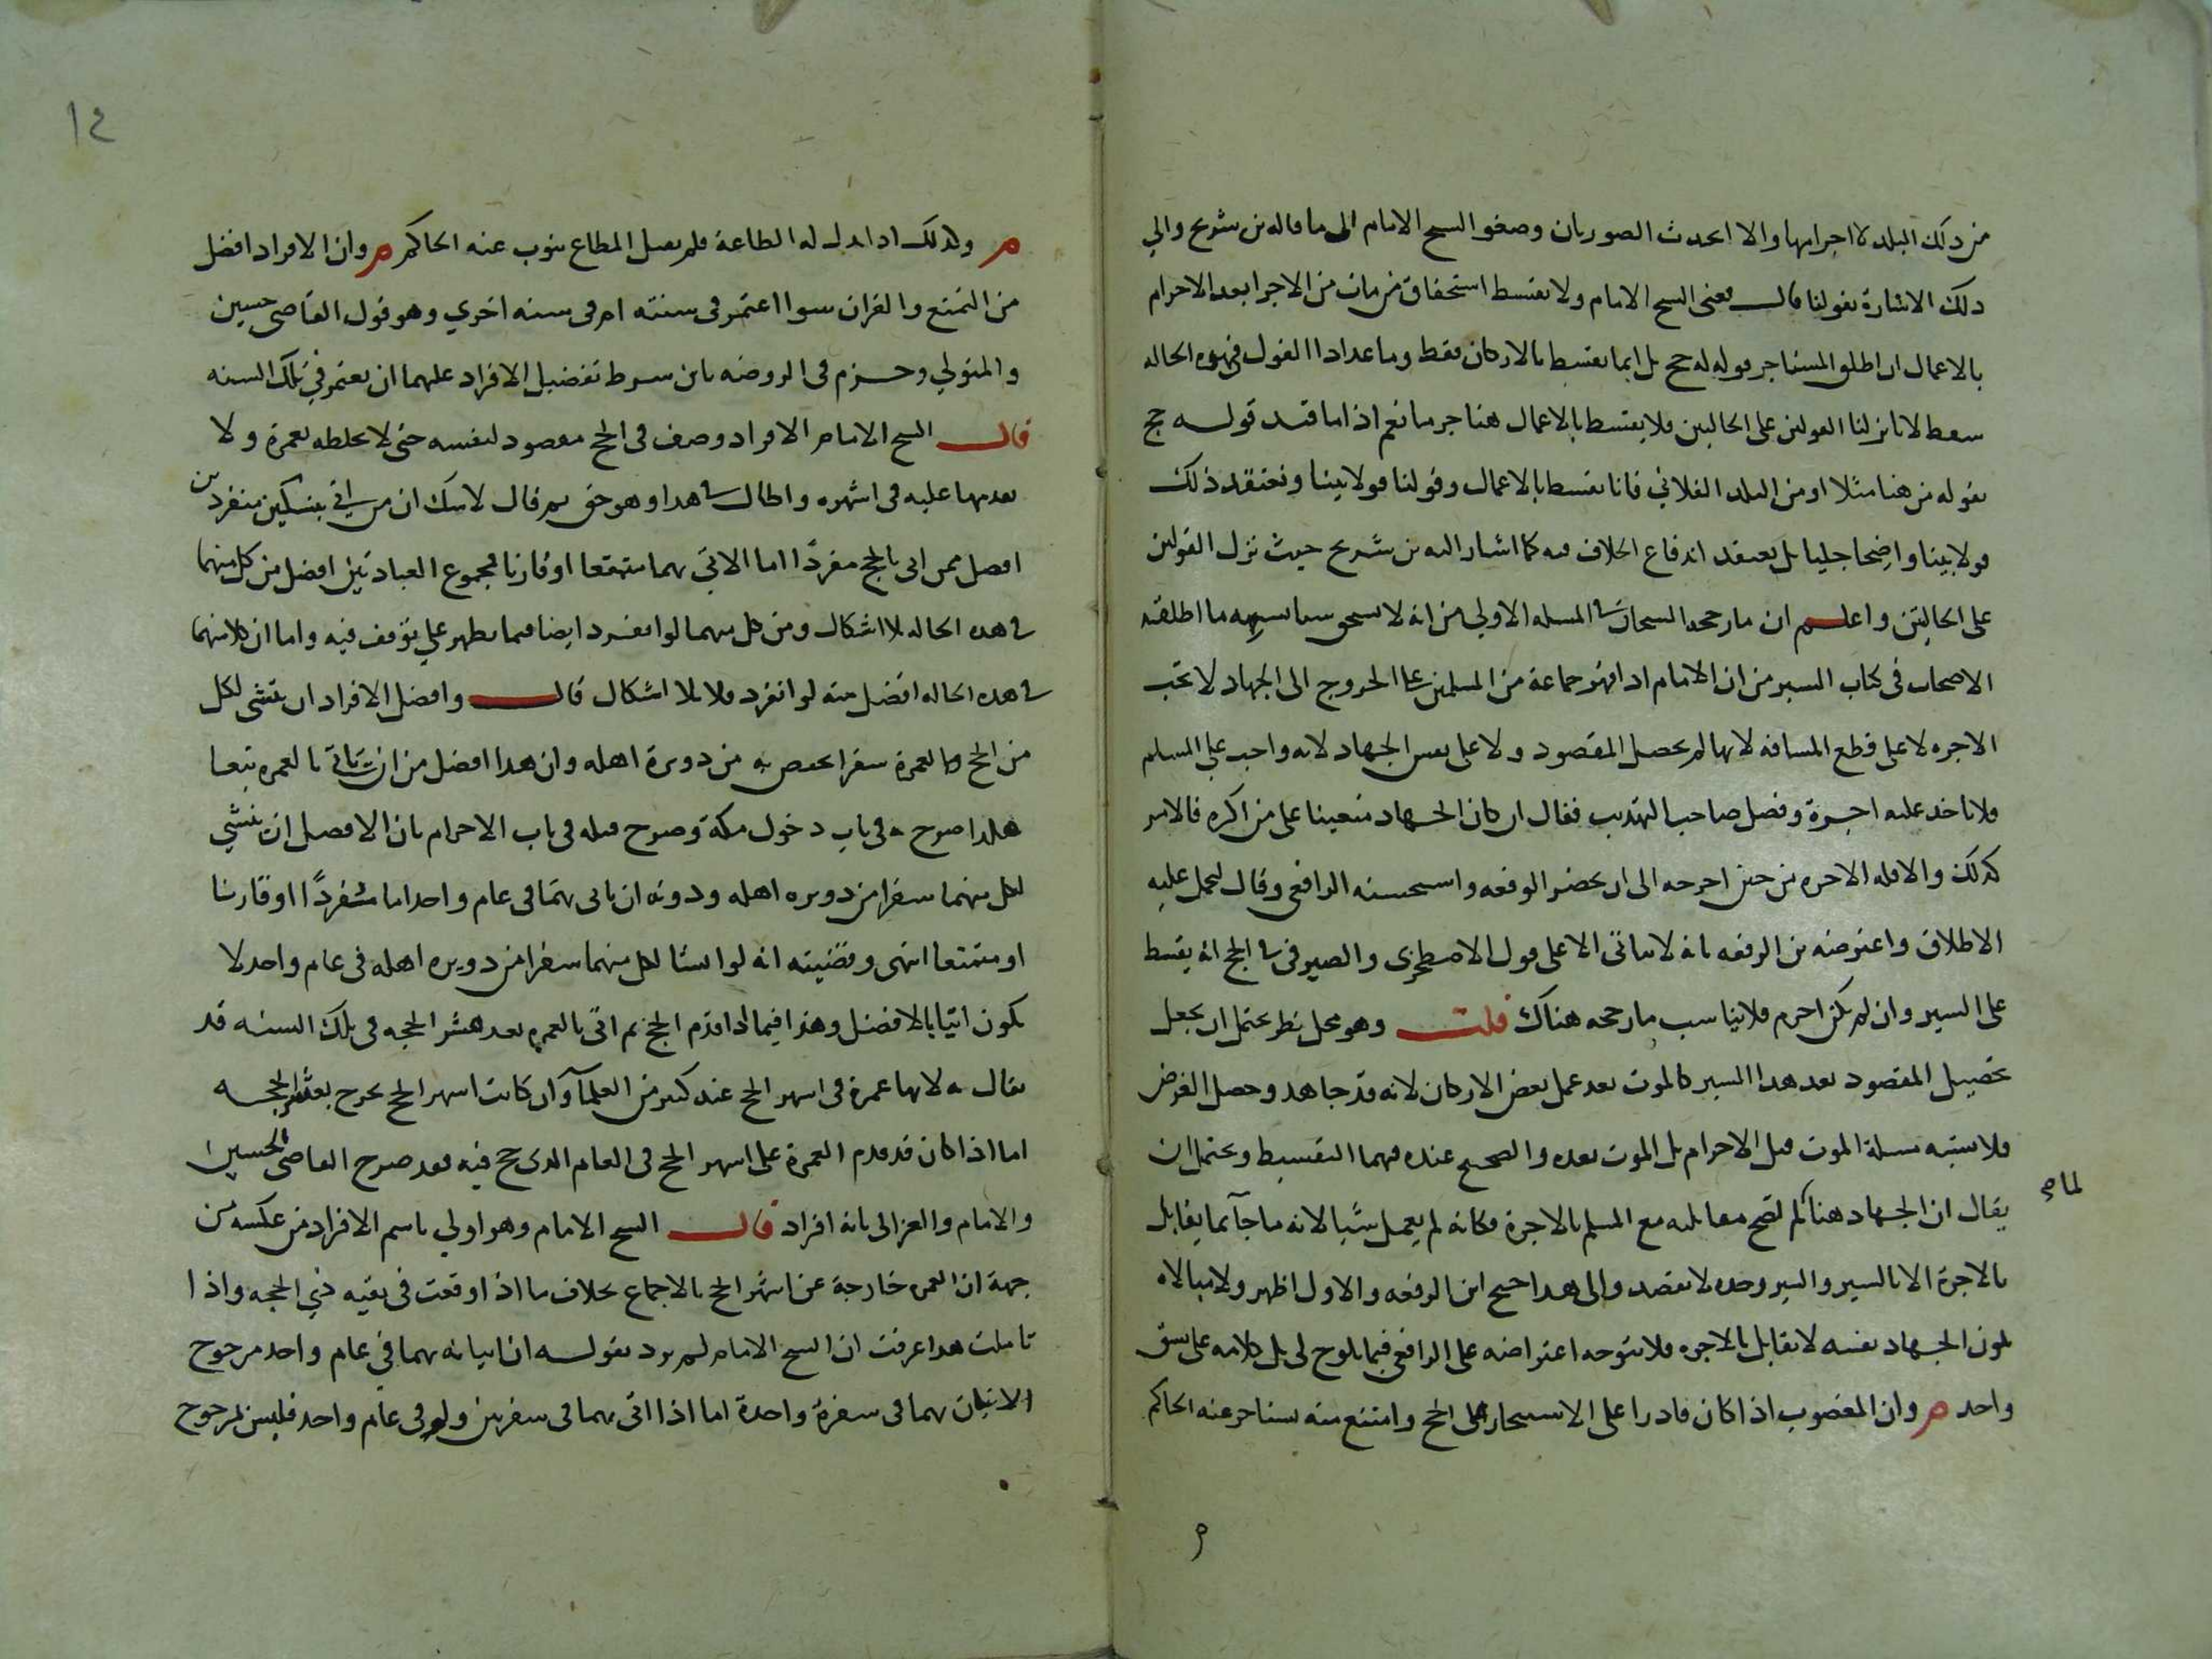 من ذلك البلد لا احرامها والا اتحدت الصورتان وصغو الشيخ الامام الى ما قاله بن شريح والي
ذلك الاشارة بقولنا قال يعنى الشيخ الامام ولا يقتسط استحقاق من مات من الاجرا بعد الاحرام
بالاعمال ان اطلق المستاجر قوله له حج بل انما يقتسط بالاركان فقط وما عدا ذا القول في هذه الحاله
سقط لانا نزلنا القولين على الحالين فلا يقتسط بالاعمال هنا جرما نعم اذا ما قيد قوله حج
بقوله من هنا مثلا او من البلد الفلاني فانا نقسط بالاعمال وقولنا قولا بينا ونعتقد ذلك
قولا بينا واضحا جليا بل نعتقد اندفاع الخلاف فيه كما اشار اليه بن شريح حيث نزل القولين
على الحالين واعلم ان ما رجحه الشيخان في المسله الاولى من انه لا يستحق شيا يشبهه ما اطلقه
الاصحاب فى كتاب السير من ان الامام اذا قهر جماعة من المسلمين على الخروج الى الجهاد لا تجب
الاجره لا على قطع المسافه لانها لم يحصل المقصود ولا على نفس الجهاد لانه واجب على المسلم
فلا ياخذ عليه اجرة وفصل صاحب التهذيب فقال ان كان الجهاد متعينا على من اكره فالامر
كذلك والا فله الاجره من حين اخرجه الى ان يحضر الوقعه واستحسنه الرافعى وقال ليحمل عليه
الاطلاق واعترضه بن الرفعه بانه لا يتاتى الا على قول الاصطخرى والصيرفى في الحج انه يقسط
على السير وان لم يكن احرم فلا يناسب ما رجحه هناك قلت وهو محل نظر يحتمل ان يجعل
تحصيل المقصود بعد هذا السير كالموت بعد عمل بعض الاركان لانه قد جاهد وحصل الغرض
فلا يشبه مسلة الموت قبل الاحرام بل الموت بعده والصحيح عنده فيهما التقسيط ويحتمل ان
يقال ان الجهاد هنا لم تصح مقابلته مع المسلم بالاجرة فكانه لم يعمل شيا لانه ما جآ بما يقابل
لما صح
بالاجرة الا بالسير والسير وحده لا يقصد والى هذا جنح ابن الرفعه والاول اظهر ولا مبالاه
بكون الجهاد نفسه لا يقابل بالاجره فلا يتوجه اعتراضه على الرافعى فيما يلوح لى بل كلامه على نسق
واحد م وان المعضوب اذا كان قادرا على الاستيجار على الحج وامتنع منه يستاجر عنه الحاكم
م وكذلك اذا بذل له الطاعة فلم يقبل المطاع ينوب عنه الحاكم م وان الافراد افضل
من التمتع والقران سوا اعتمر فى سنته ام فى سنه اخري وهو قول القاضى حسين
والمتولي وجزم فى الروضه بان شرط تفضيل الافراد عليهما ان يعتمر في تلك السنه
قال الشيخ الامام الافراد وصف فى الحج مقصود لنفسه حتى لا يخلطه بعمرة ولا
يقدمها عليه فى اشهره واطال في هذا وهو حق ثم قال لا شك ان من اتى بنسكين منفردين
افضل ممن اتى بالحج مفردًا اما الاتي بهما متمتعا او قارنا فمجموع العبادتين افضل من كل منهما
في هذه الحاله بلا اشكال ومن كل منهما لو انفرد ايضا فيما يظهر علي توقف فيه واما ان كلا منهما
في هذه الحاله افضل منه لو انفرد فلا بلا اشكال قال وافضل الافراد ان ينشى لكل
من الحج والعمرة سفرا يخصه به من دويرة اهله وان هذا افضل من ان تاتي بالعمره تبعا
هكذا صرح به في باب دخول مكة وصرح قبله فى باب الاحرام بان الافضل ان ينشي
لكل منهما سفرا من دويره اهله ودونه ان ياتى بهما فى عام واحد اما مفردًا او قارنا
او متمتعا انتهى وقضيته انه لو انشا لكل منهما سفرا من دويره اهله فى عام واحد لا
يكون اتيا بالافضل وهذا فيما اذا قدم الحج ثم اتى بالعمره بعد عشر الحجه فى تلك السنه قد
يقال به لانها عمرة فى اشهر الحج عند كثير من العلمآ وان كانت اشهر الحج تخرج بعشر الحجه
اما اذا كان قد قدم العمرة على اشهر الحج فى العام الذى حج فيه فقد صرح القاضى الحسين
والامام والغزالى بانه افراد قال الشيخ الامام وهو اولي باسم الافراد من عكسه من
جهة ان العمره خارجة عن اشهر الحج بالاجماع بخلاف ما اذا وقعت فى بقيه ذي الحجه واذا
تاملت هذا عرفت ان الشيخ الامام لم يرد بقوله ان اتيانه بهما في عام واحد مرجوح
الاتيان بهما فى سفرة واحدة اما اذا اتى بهما فى سفرين ولو فى عام واحد فليس بمرجوح
١٤